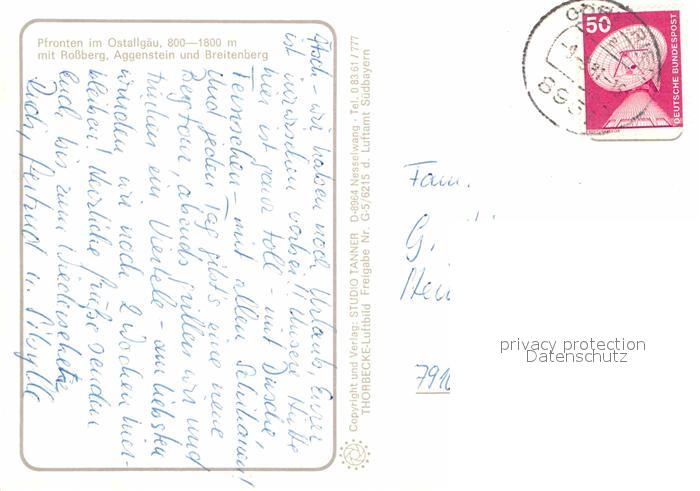 Pfronten im Ostallgäu, 800—1800 m
mit Roßberg, Aggenstein und Breitenberg
Ätsch - wir haben noch Urlaub, Eurer
ist inzwischen vorbei! Unsere Hütte
hier ist ganz toll - mit Dusche,
Fernsehen - mit allen Schikanen!
Und jeden Tag gibt's eine neue
Bergtour, abends grillen wir und
trinken ein Viertele - am liebsten
würden wir noch 2 Wochen hier-
bleiben! Herzliche Grüße senden
Euch bis zum Wiedersehen
Dieh, Gertrud u. Sibylle
Copyright und Verlag: STUDIO TANNER D-8964 Nesselwang · Tel. 0 83 61 / 777
THORBECKE-Luftbild Freigabe Nr. G-5/6215 d. Luftamt Südbayern
50
DEUTSCHE BUNDESPOST
Fam.
G.
791
privacy protection
Datenschutz